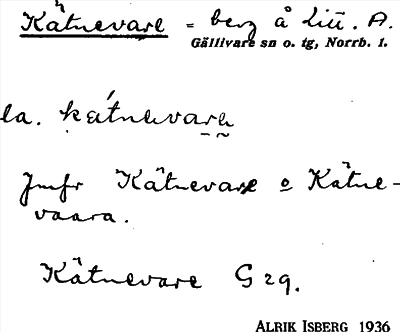 Kätnevare = berg å Lill. A.
Gällivare sn o. tg, Norrb. l.
la. kátnavarẹ
Jmfr Kätnevare o Kätne-
vaara.
Kätnevare G 29.
ALRIK ISBERG 1936